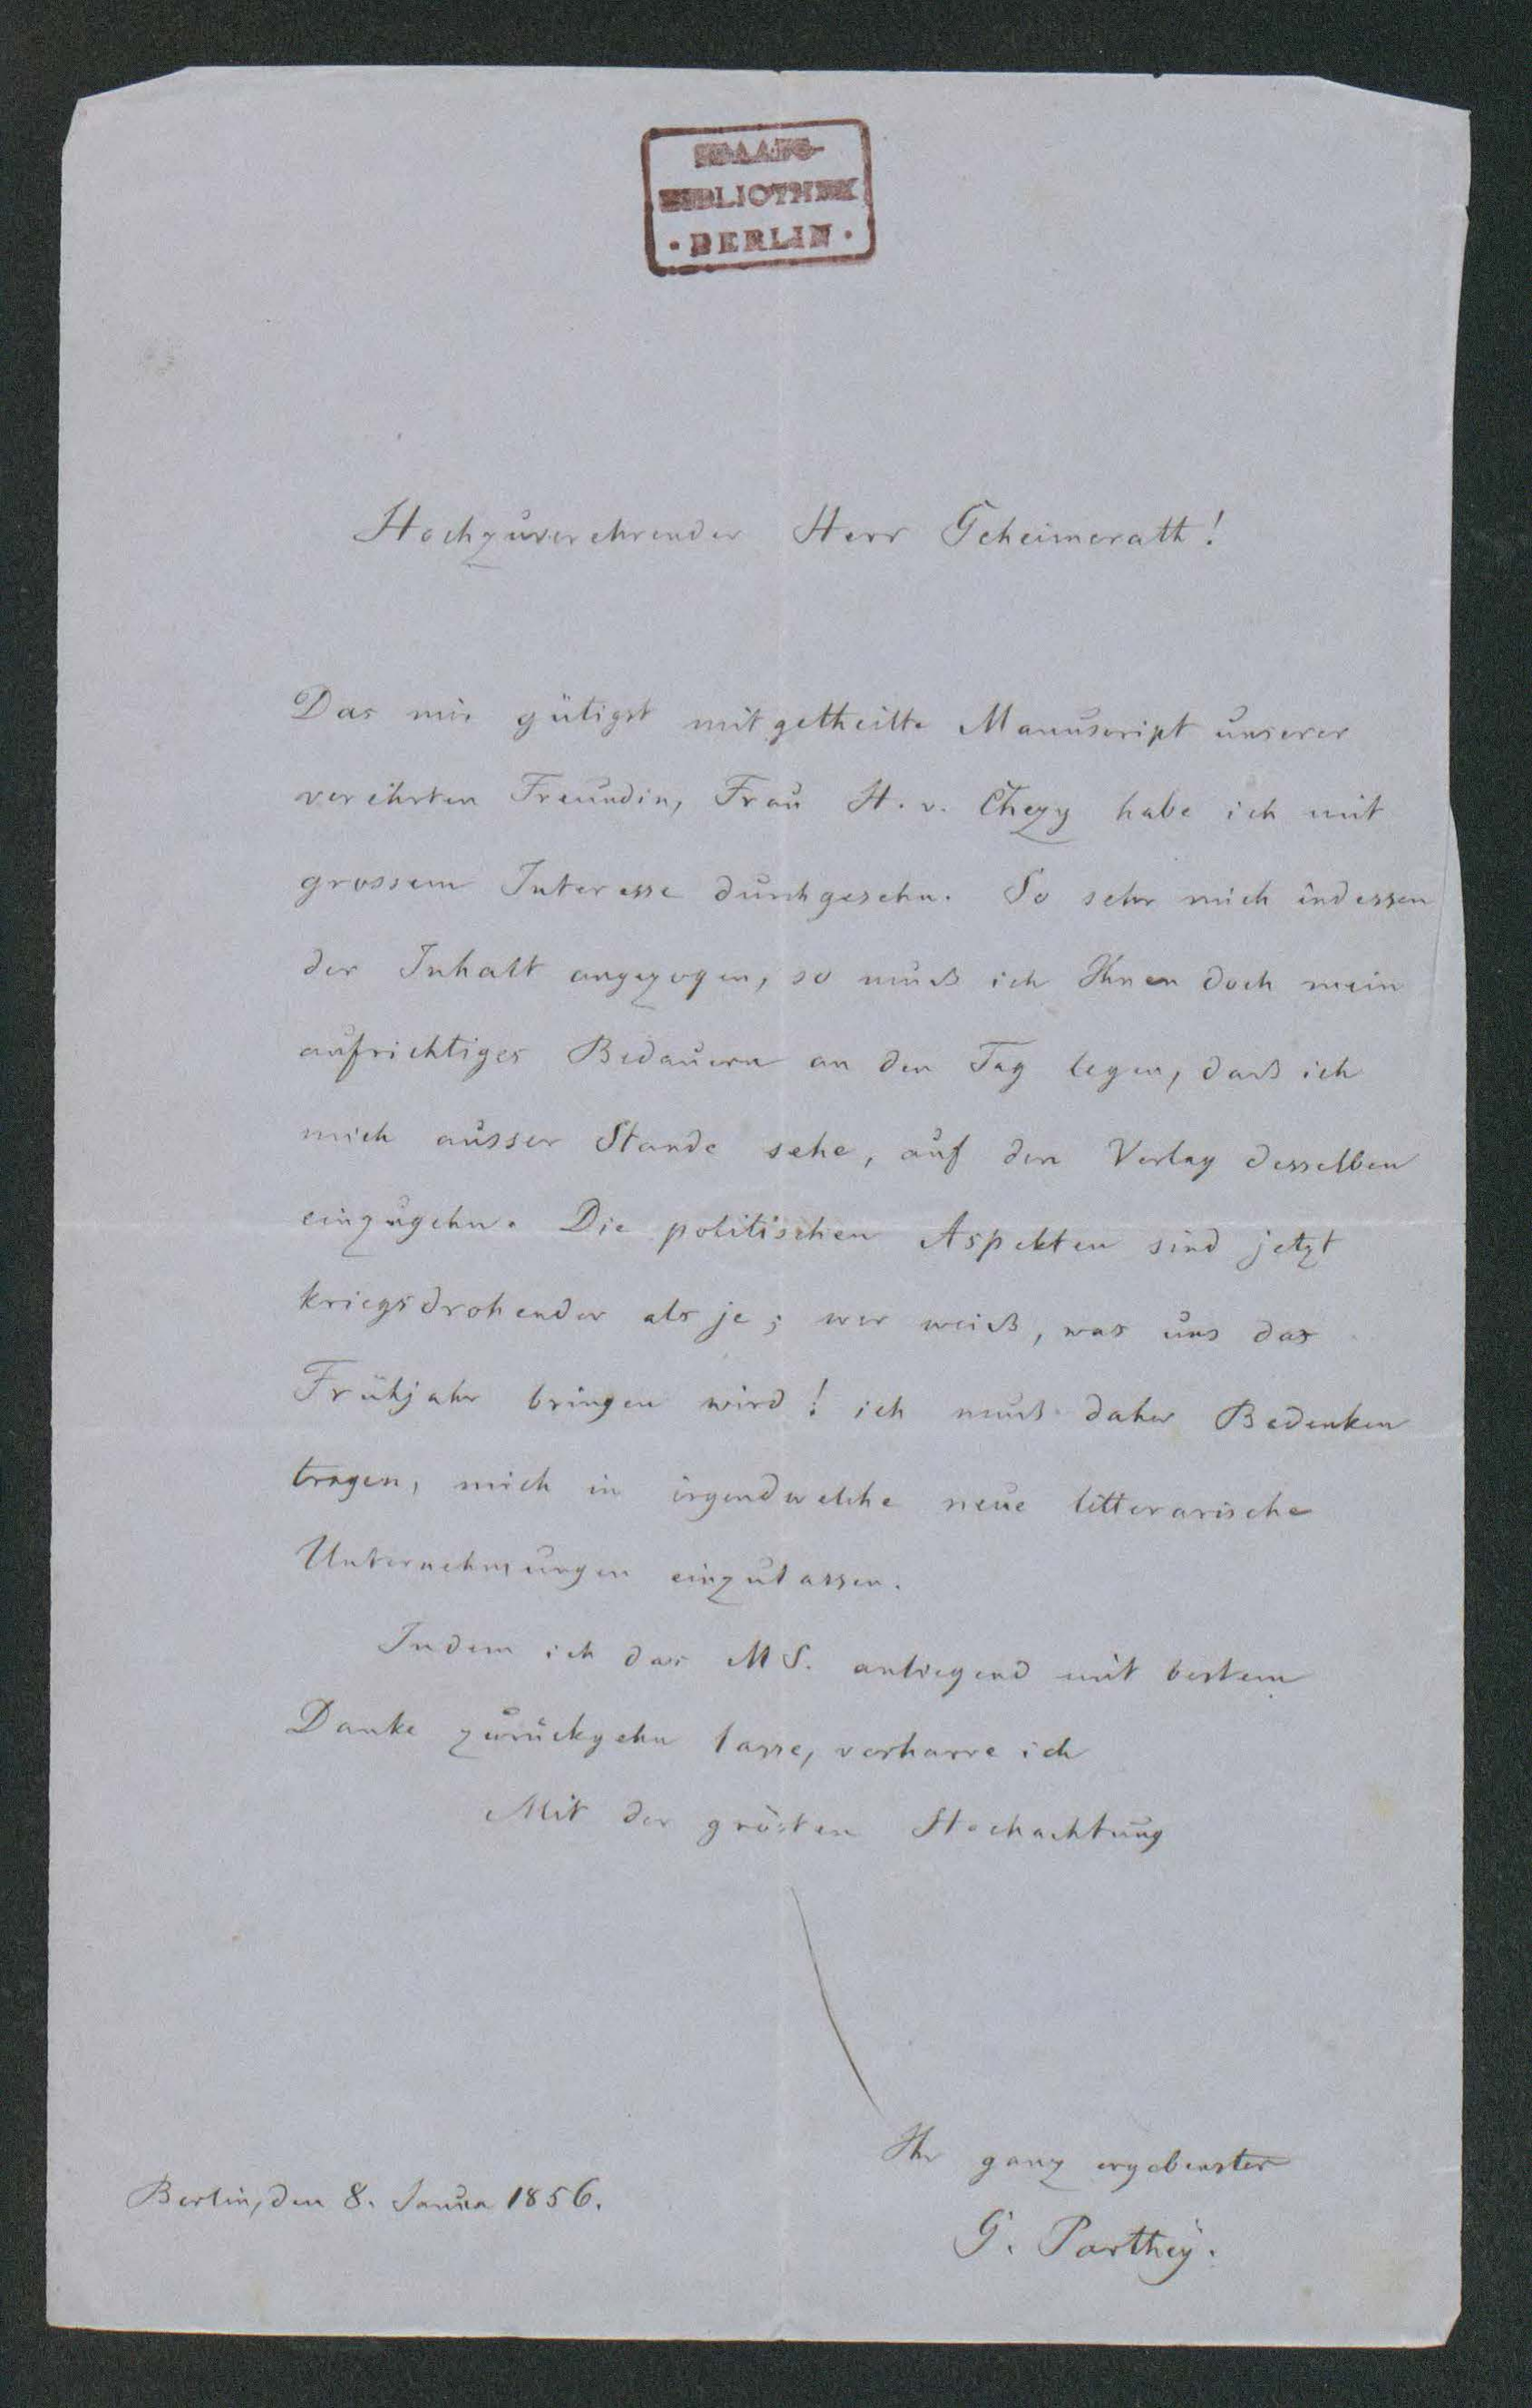 STAATS-
BIBLIOTHEK
· BERLIN ·
Hochzuverehrender Herr Geheimerath!
Das mir gütigst mitgetheilte Manuscript unserer
verehrten Freundin, Frau H. v. Chezy habe ich mit
grossem Interesse durchgesehn. So sehr mich indessen
der Inhalt angezogen, so muß ich Ihnen doch mein
aufrichtiges Bedauern an den Tag legen, daß ich
mich ausser Stande sehe, auf den Verlag desselben
einzugehn. Die politischen Aspekten sind jetzt
kriegsdrohender als je; wer weiß, was uns das
Frühjahr bringen wird! ich muß daher Bedenken
tragen, mich in irgendwelche neue litterarische
Unternehmungen einzulassen.
Indem ich das MS. anliegend mit bestem
Danke zurückgehn lasse, verharre ich
Mit der grösten Hochachtung
Ihr ganz ergebenster
Berlin, den 8. Januar 1856.
G. Parthey.